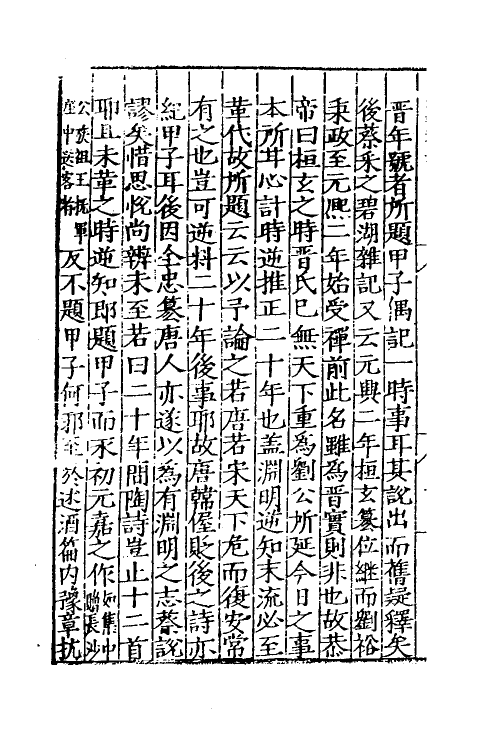 晉年號者所題甲子偶記一時事耳其說出而舊疑釋矣
後蔡采之碧湖雜記又云元興二年桓玄篡位繼而劉裕
秉政至元熙二年始受禪前此名雖為晉實則非也故恭
帝曰桓玄之時晉氏已無天下重為劉公所延今日之事
本所甘心計時逆推正二十年也蓋淵明逆知末流必至
革代故所題云云以予論之若唐若宋天下危而復安常
有之也豈可逆料二十年後事耶故唐韓偓貶後之詩亦
紀甲子耳後因全忠篡唐人亦遂以為有淵明之志蔡說
謬矣惜思悅尚辨未至若曰二十年間陶詩豈止十二首
耶且未革之時逆知即題甲子而永初元嘉之作如集中贈長沙
公族祖王撫軍座中送客者反不題甲子何邪至於述酒篇內豫章抗